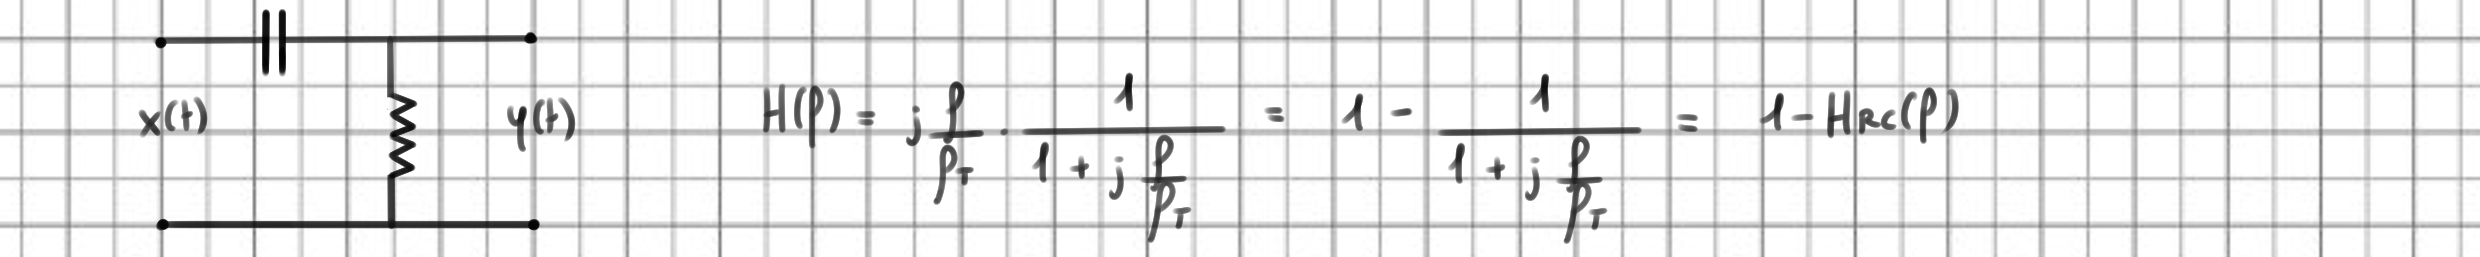 x(t) y(t) H(f) = j f/f_T · 1/(1 + j f/f_T) = 1 - 1/(1 + j f/f_T) = 1 - H_RC(f)